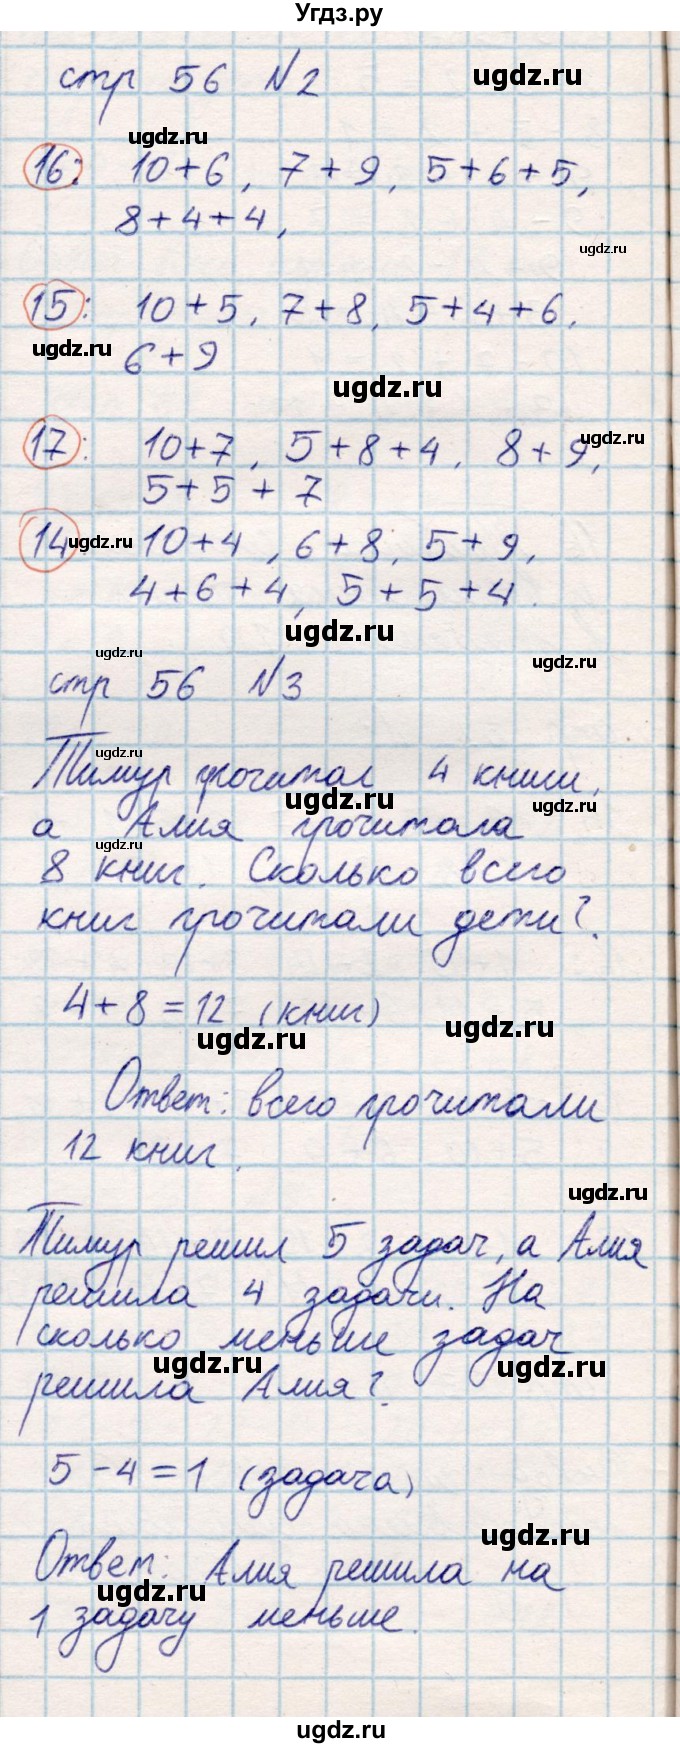 Угдз.ру
стр 56 №2
ugdz.ru
ugdz.ru
16: 10+6, 7+9, 5+6+5,
8+4+4,
ugdz.ru
15: 10+5, 7+8, 5+4+6,
ugdz.ru
6+9
ugdz.ru
17: 10+7, 5+8+4, 8+9,
ugdz.ru
5+5+7
14: 10+4, 6+8, 5+9,
ugdz.ru
4+6+4, 5+5+4.
ugdz.ru
ugdz.ru
ugdz.ru
стр 56 №3
ugdz.ru
Тимур прочитал 4 книги,
ugdz.ru
ugdz.ru
а Алия прочитала
ugdz.ru
8 книг. Сколько всего
книг прочитали дети?
4+8=12 (книг)
ugdz.ru
ugdz.ru
Ответ: всего прочитали
12 книг.
ugdz.ru
Тимур решил 5 задач, а Алия
решила 4 задачи. На
сколько меньше задач
ugdz.ru
ugdz.ru
решила Алия?
5-4=1 (задача)
ugdz.ru
Ответ: Алия решила на
ugdz.ru
1 задачу меньше.
ugdz.ru